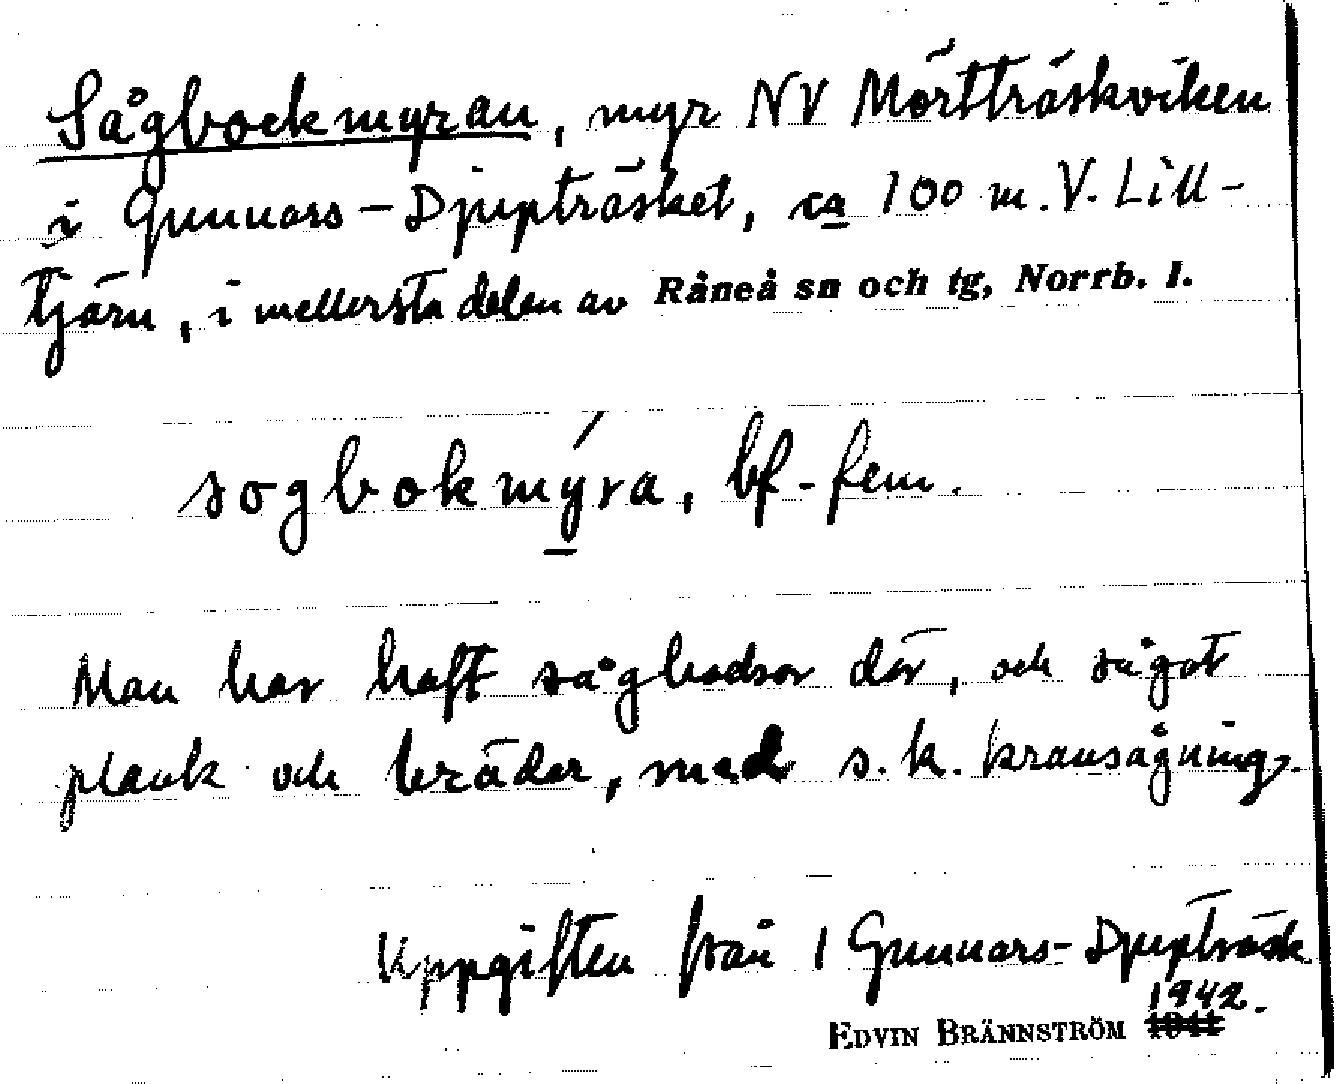 Sågbockmyran, myr NV Mörtträskviken
i Gunnars-Djupträsket, ca 100 m. V. Lill-
tjärn, i mellersta delen av Råneå sn och tg, Norrb. l.
sogbokmýra, bf. fem.
Man har haft sågbockar där, och sågat
plank och bräder, med s.k. kransågning.
Uppgiften från 1 Gunnars-Djupträsk
1942.
EDVIN BRÄNNSTRÖM 1941